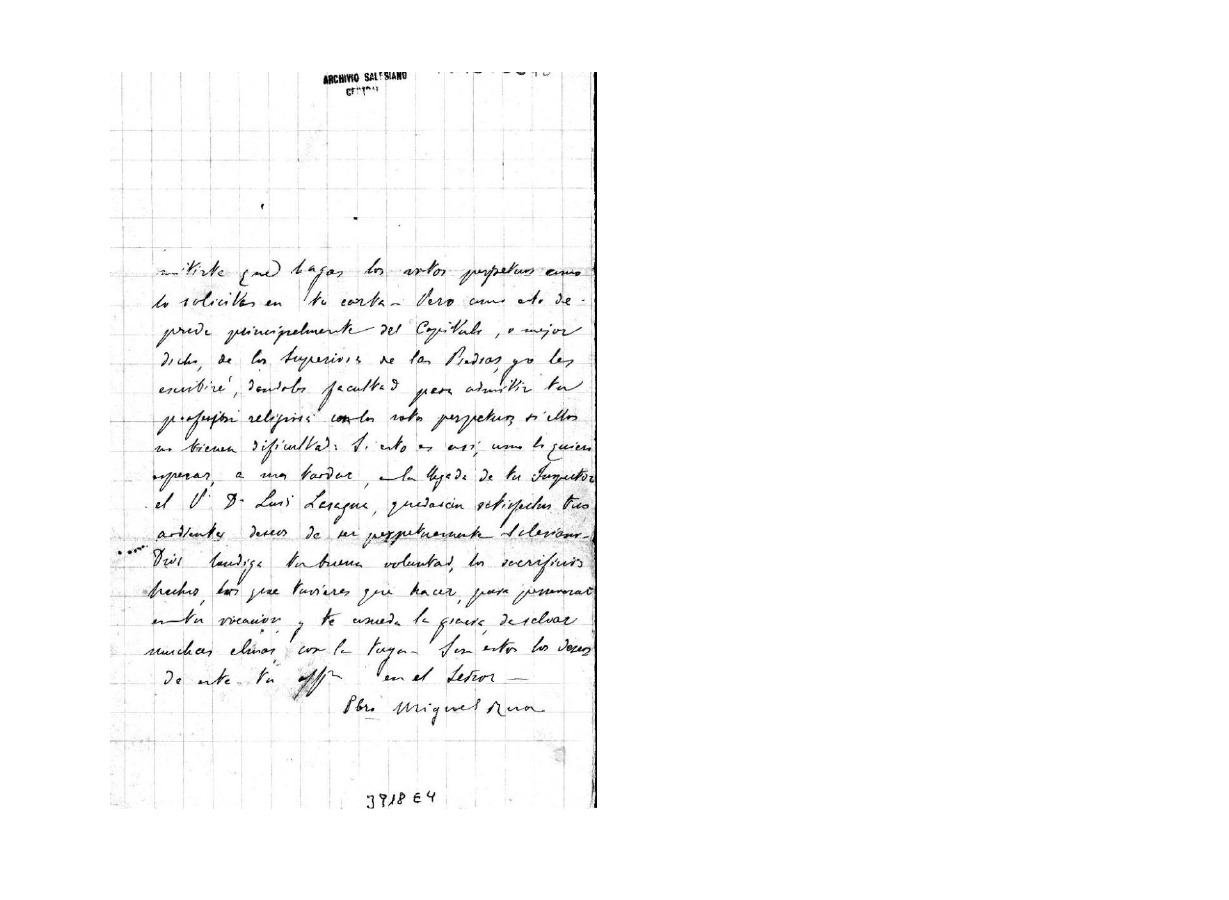 ARCHIVIO SALESIANO
CENTRAL
mitirte que hagas los votos perpetuos como
lo solicitas en tu carta – Pero como esto de-
pende principalmente del Capitulo, o mejor
dicho, de los Superiores de las Piedras, yo les
escribiré, dandoles facultad para admitir tu
profesión religiosa con los votos perpetuos si ellos
no tienen dificultad. Si esto es así, como lo quiero
esperar, a mas tardar, en la llegada de tu Inspector
el P. D. Luis Lasagna, quedarán satisfechos tus
ardientes deseos de ser perpetuamente Salesiano –
Dios bendiga tu buena voluntad, los sacrificios
hechos, los que tuvieres que hacer, para perseverar
en tu vocación y te conceda la gracia de salvar
muchas almas con la tuya – Son estos los deseos
de este tu affmo en el Señor –
Pbro Miguel Rua
3918 E4